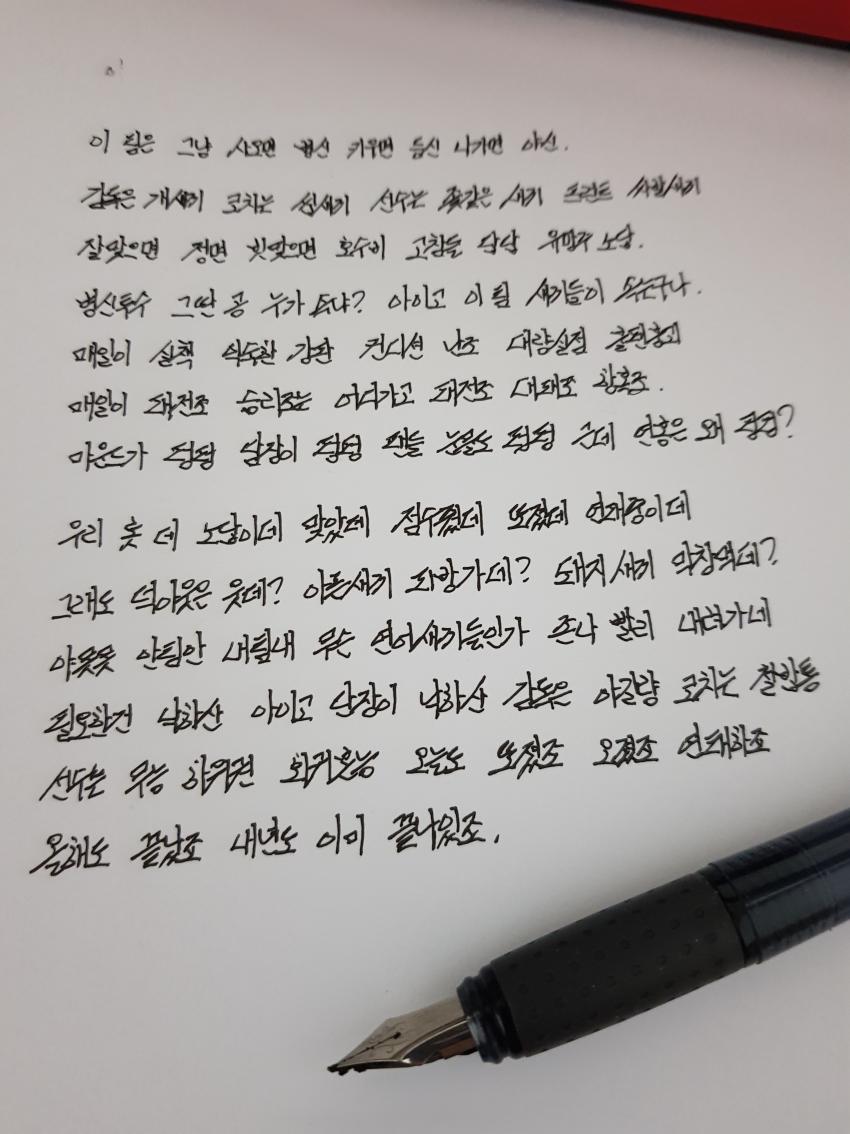 이 팀은 그냥 사오면 병신 키우면 등신 나가면 야신.
감독은 개새끼 코치는 씹새끼 선수는 좆같은 새끼 프런트 싸발새끼
잘맞으면 정면 빗맞으면 호수비 고참들 담담 유망주 노답.
병신투수 그딴 공 누가 속냐? 아이고 이 팀 새끼들이 속는구나.
매일이 실책 강판 컨디션 난조 대량실점
매일이 패전조 승리조는 어디가고 패전조 대패조 황혼조.
마운드가 텅텅 담장이 텅텅 팬들 눈물도 텅텅 근데 연봉은 왜 텅텅?
우리 못 데 노답이데 맞았데 점수줬데 또졌데 연패중이데
그래도 덕아웃은 웃데? 어떤새끼 다방가데? 돼지새끼 막창먹데?
야옺옺 안팀안 내팀내 무슨 연어새끼들인가 존나 빨리 내려가네
필요한건 낙하산 아이고 단장이 낙하산 감독은 야잘알 코치는 철밥통
선수는 무능 하위권 회귀본능 오늘도 또졌조 오졌조 연패하조
올해도 끝났조 내년도 이미 끝나있조.